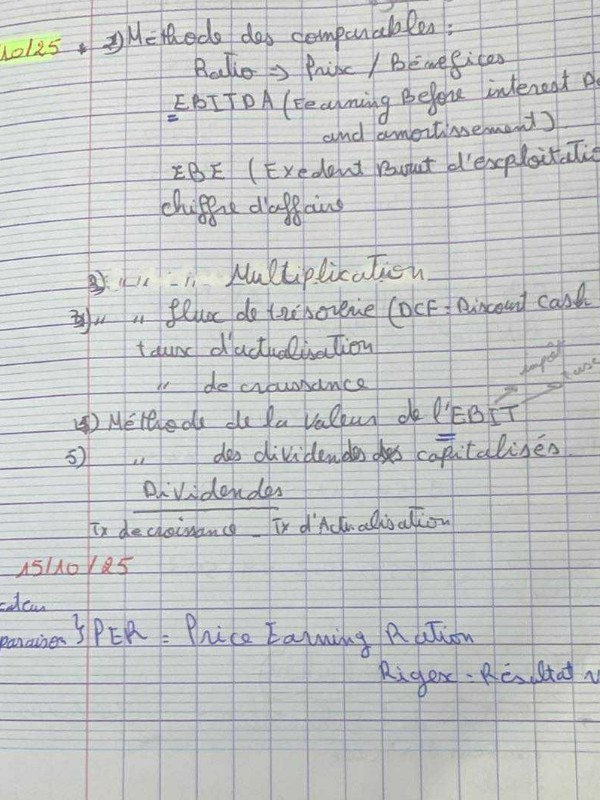 10/25 1) Méthode des comparables :
Ratio => Prix / Bénéfices
EBITDA (Eearning Before interest
and amortissement)
EBE (Exedent Brut d'exploitatio
chiffre d'affaire
2) " " - " Multiplication
3) " " flux de trésorerie (DCF : Discount Cash
taux d'actualisation
" de croissance
impôt
4) Méthode de la Valeur de l'EBIT
5) " des dividendes des capitalisés.
Dividendes
Tx de croissance - Tx d'Actualisation
15/10/25
paraison } PER = Price Earning Ration
= Résultat